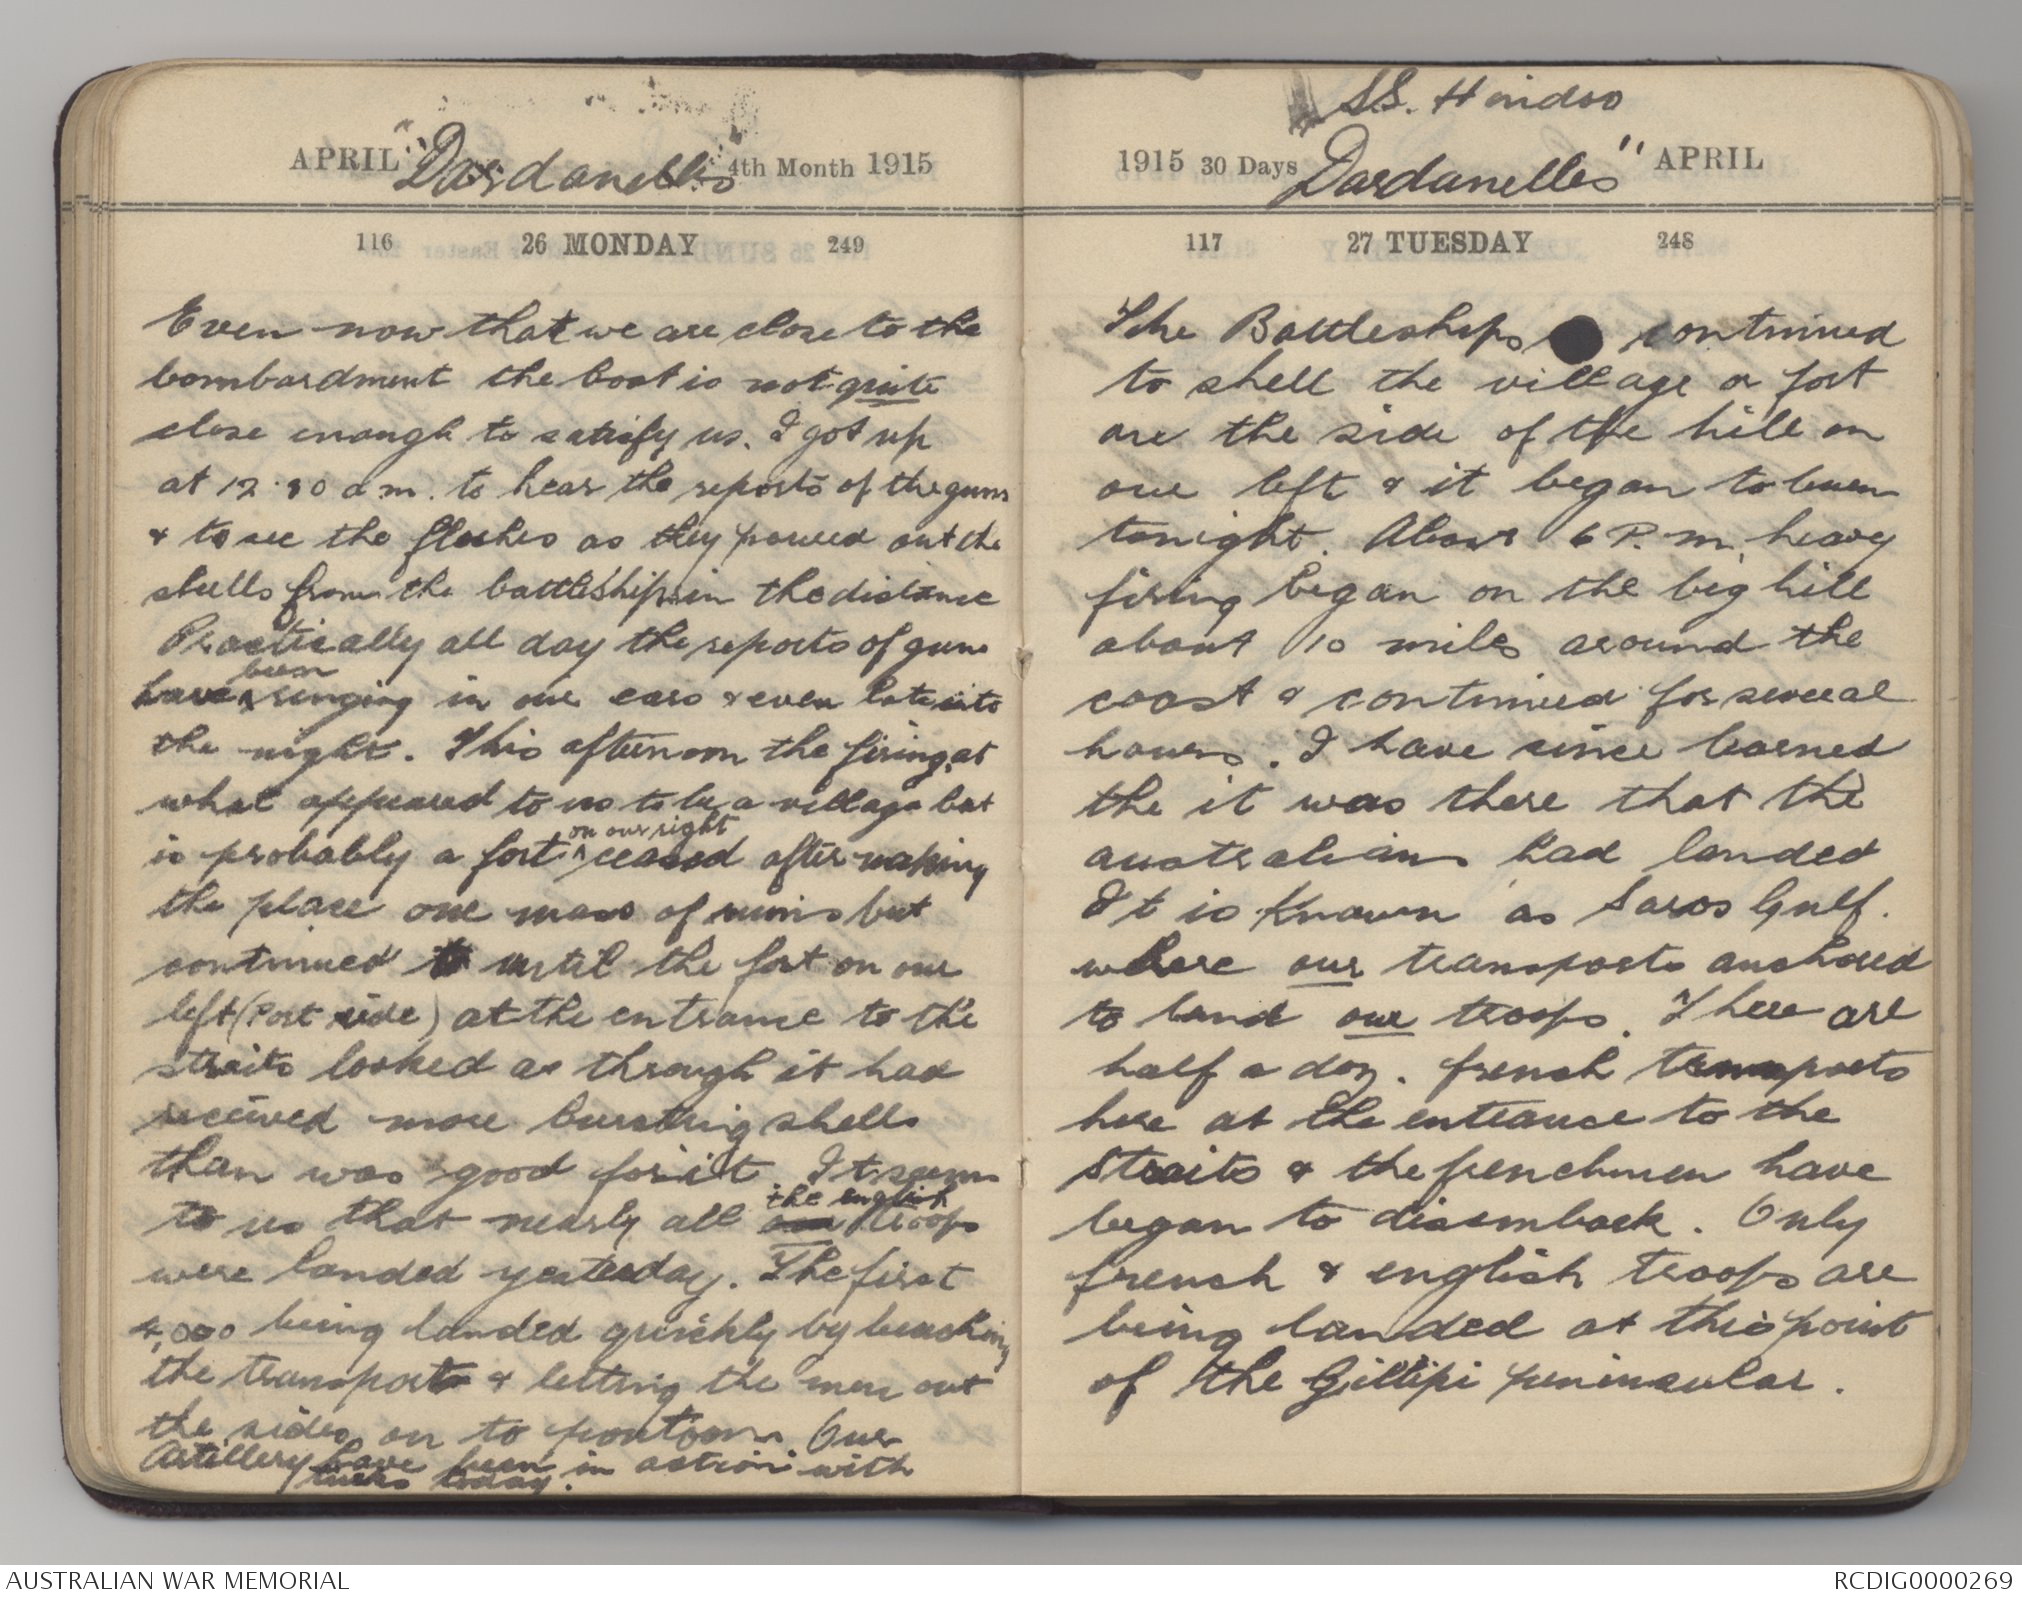 APRIL "Dardanelles" 4th Month 1915
116 26 MONDAY 249
Even now that we are close to the
bombardment the boat is not quite
close enough to satisfy us. I got up
at 12.30 a m. to hear the reports of the guns
& to see the flashes as they poured out the
shells from the battleships in the distance
Practically all day the reports of guns
been
have ^ ringing in our ears & even late into
the night. This afternoon the firing at
what appeared to us to be a village but
on our right
is probably a fort ^ ceased after making
the place one mass of ruins but
continued until the fort on our
left (Port side) at the entrance to the
straits looked as through it had
received more bursting shells
than was good for it It seems
the english
to us that nearly all our troops
were landed yesterday. The first
4,000 being landed quickly by beaching
the transports & letting the men out
the sides on to pontoons Our
Artillery have been in action with
turks today.
S.S. Hindoo
1915 30 Days Dardanelles" APRIL
117 27 TUESDAY 248
The Battleships continued
to shell the village or fort
on the side of the hill on
our left & it began to burn
tonight. About 6 P.m. heavy
firing began on the big hill
about 10 miles around the
coast & continued for several
hours. I have since learned
the it was there that the
australians had landed
It is known as Saros Gulf.
where our transports anchored
to land our troops. There are
half a doz. french transports
here at the entrance to the
straits & the frenchmen have
began to disembark. Only
french & english troops are
being landed at this point
of the Gillipi peninsular.
AUSTRALIAN WAR MEMORIAL
RCDIG0000269